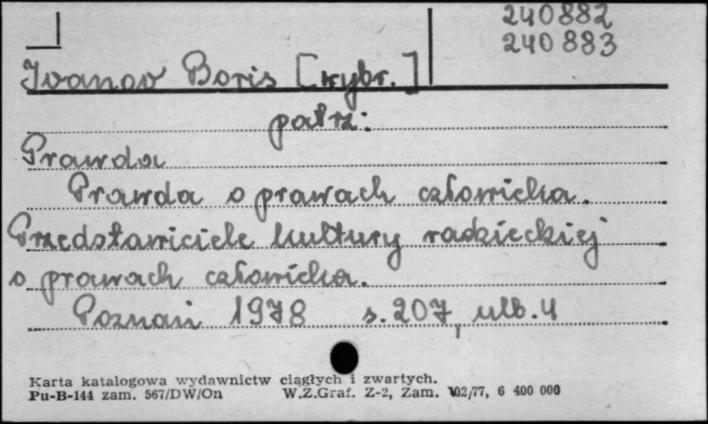 240882
240883
Ivanov Boris [wybr.]
patrz:
Prawda
Prawda o prawach człowieka.
Przedstawiciele kultury radzieckiej
o prawach człowieka.
Poznań 1978 s. 207, ulb. 4
Karta katalogowa wydawnictw ciągłych i zwartych.
Pu-B-144 zam. 567/DW/On W.Z.Graf. Z-2, Zam. 102/77, 6 400 000